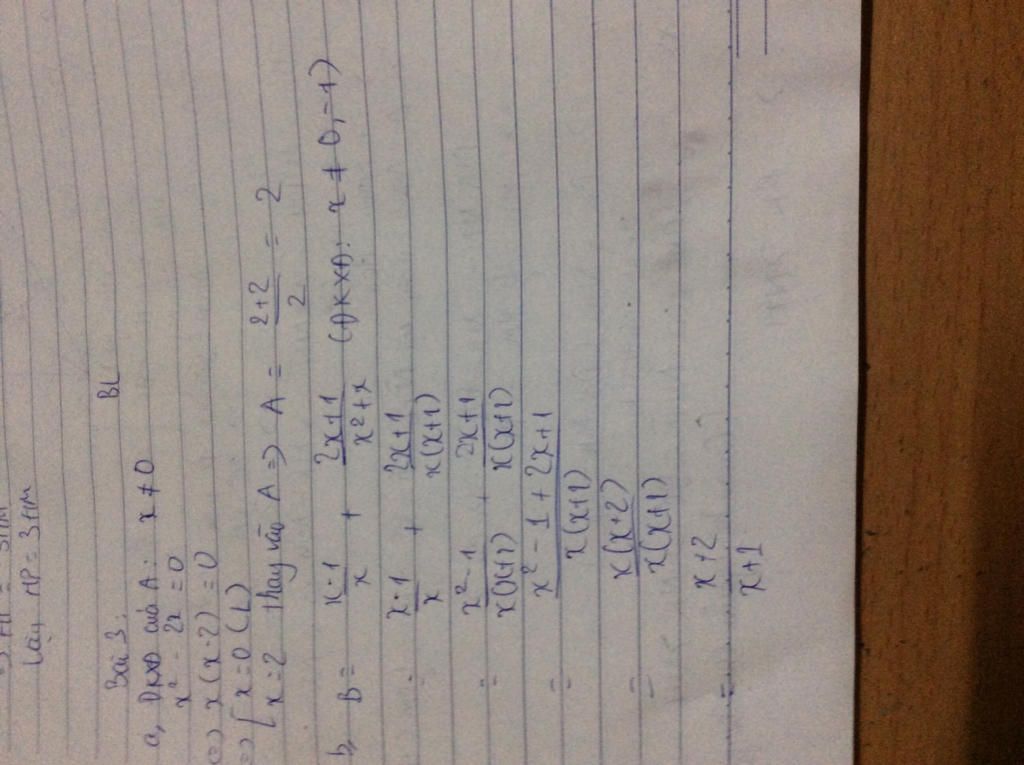 Lấy MP = 3HM
Bài 3.
BL
a, ĐKXĐ của A: x ≠ 0
x² - 2x = 0
(=) x(x-2) = 0
=) [ x = 0 (L)
x = 2 thay vào A =) A = 2+2/2 = 2
b, B = x-1/x + 2x+1/x²+x (ĐKXĐ: x ≠ 0, -1)
= x-1/x + 2x+1/x(x+1)
= x²-1/x(x+1) + 2x+1/x(x+1)
= x²-1+2x+1/x(x+1)
= x(x+2)/x(x+1)
= x+2/x+1